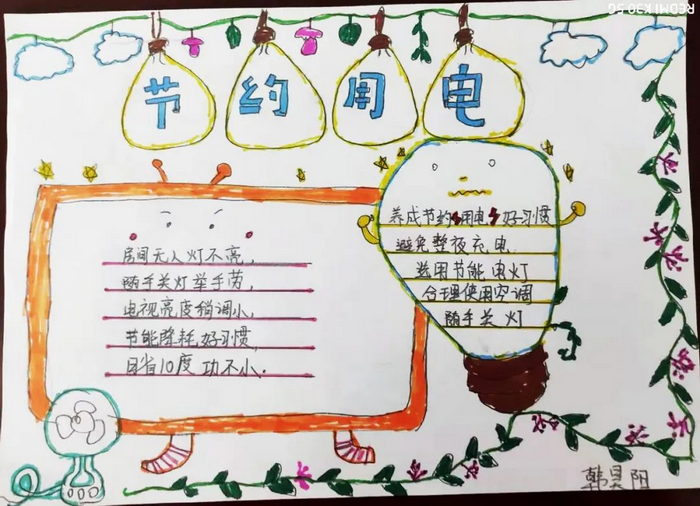 节约用电
房间无人灯不亮,
随手关灯举手劳,
电视亮度稍调小,
节能降耗好习惯,
日省10度功不小.
养成节约用电好习惯
避免整夜充电
选用节能电灯
合理使用空调
随手关灯
韩昊阳
REDMI K30 5G